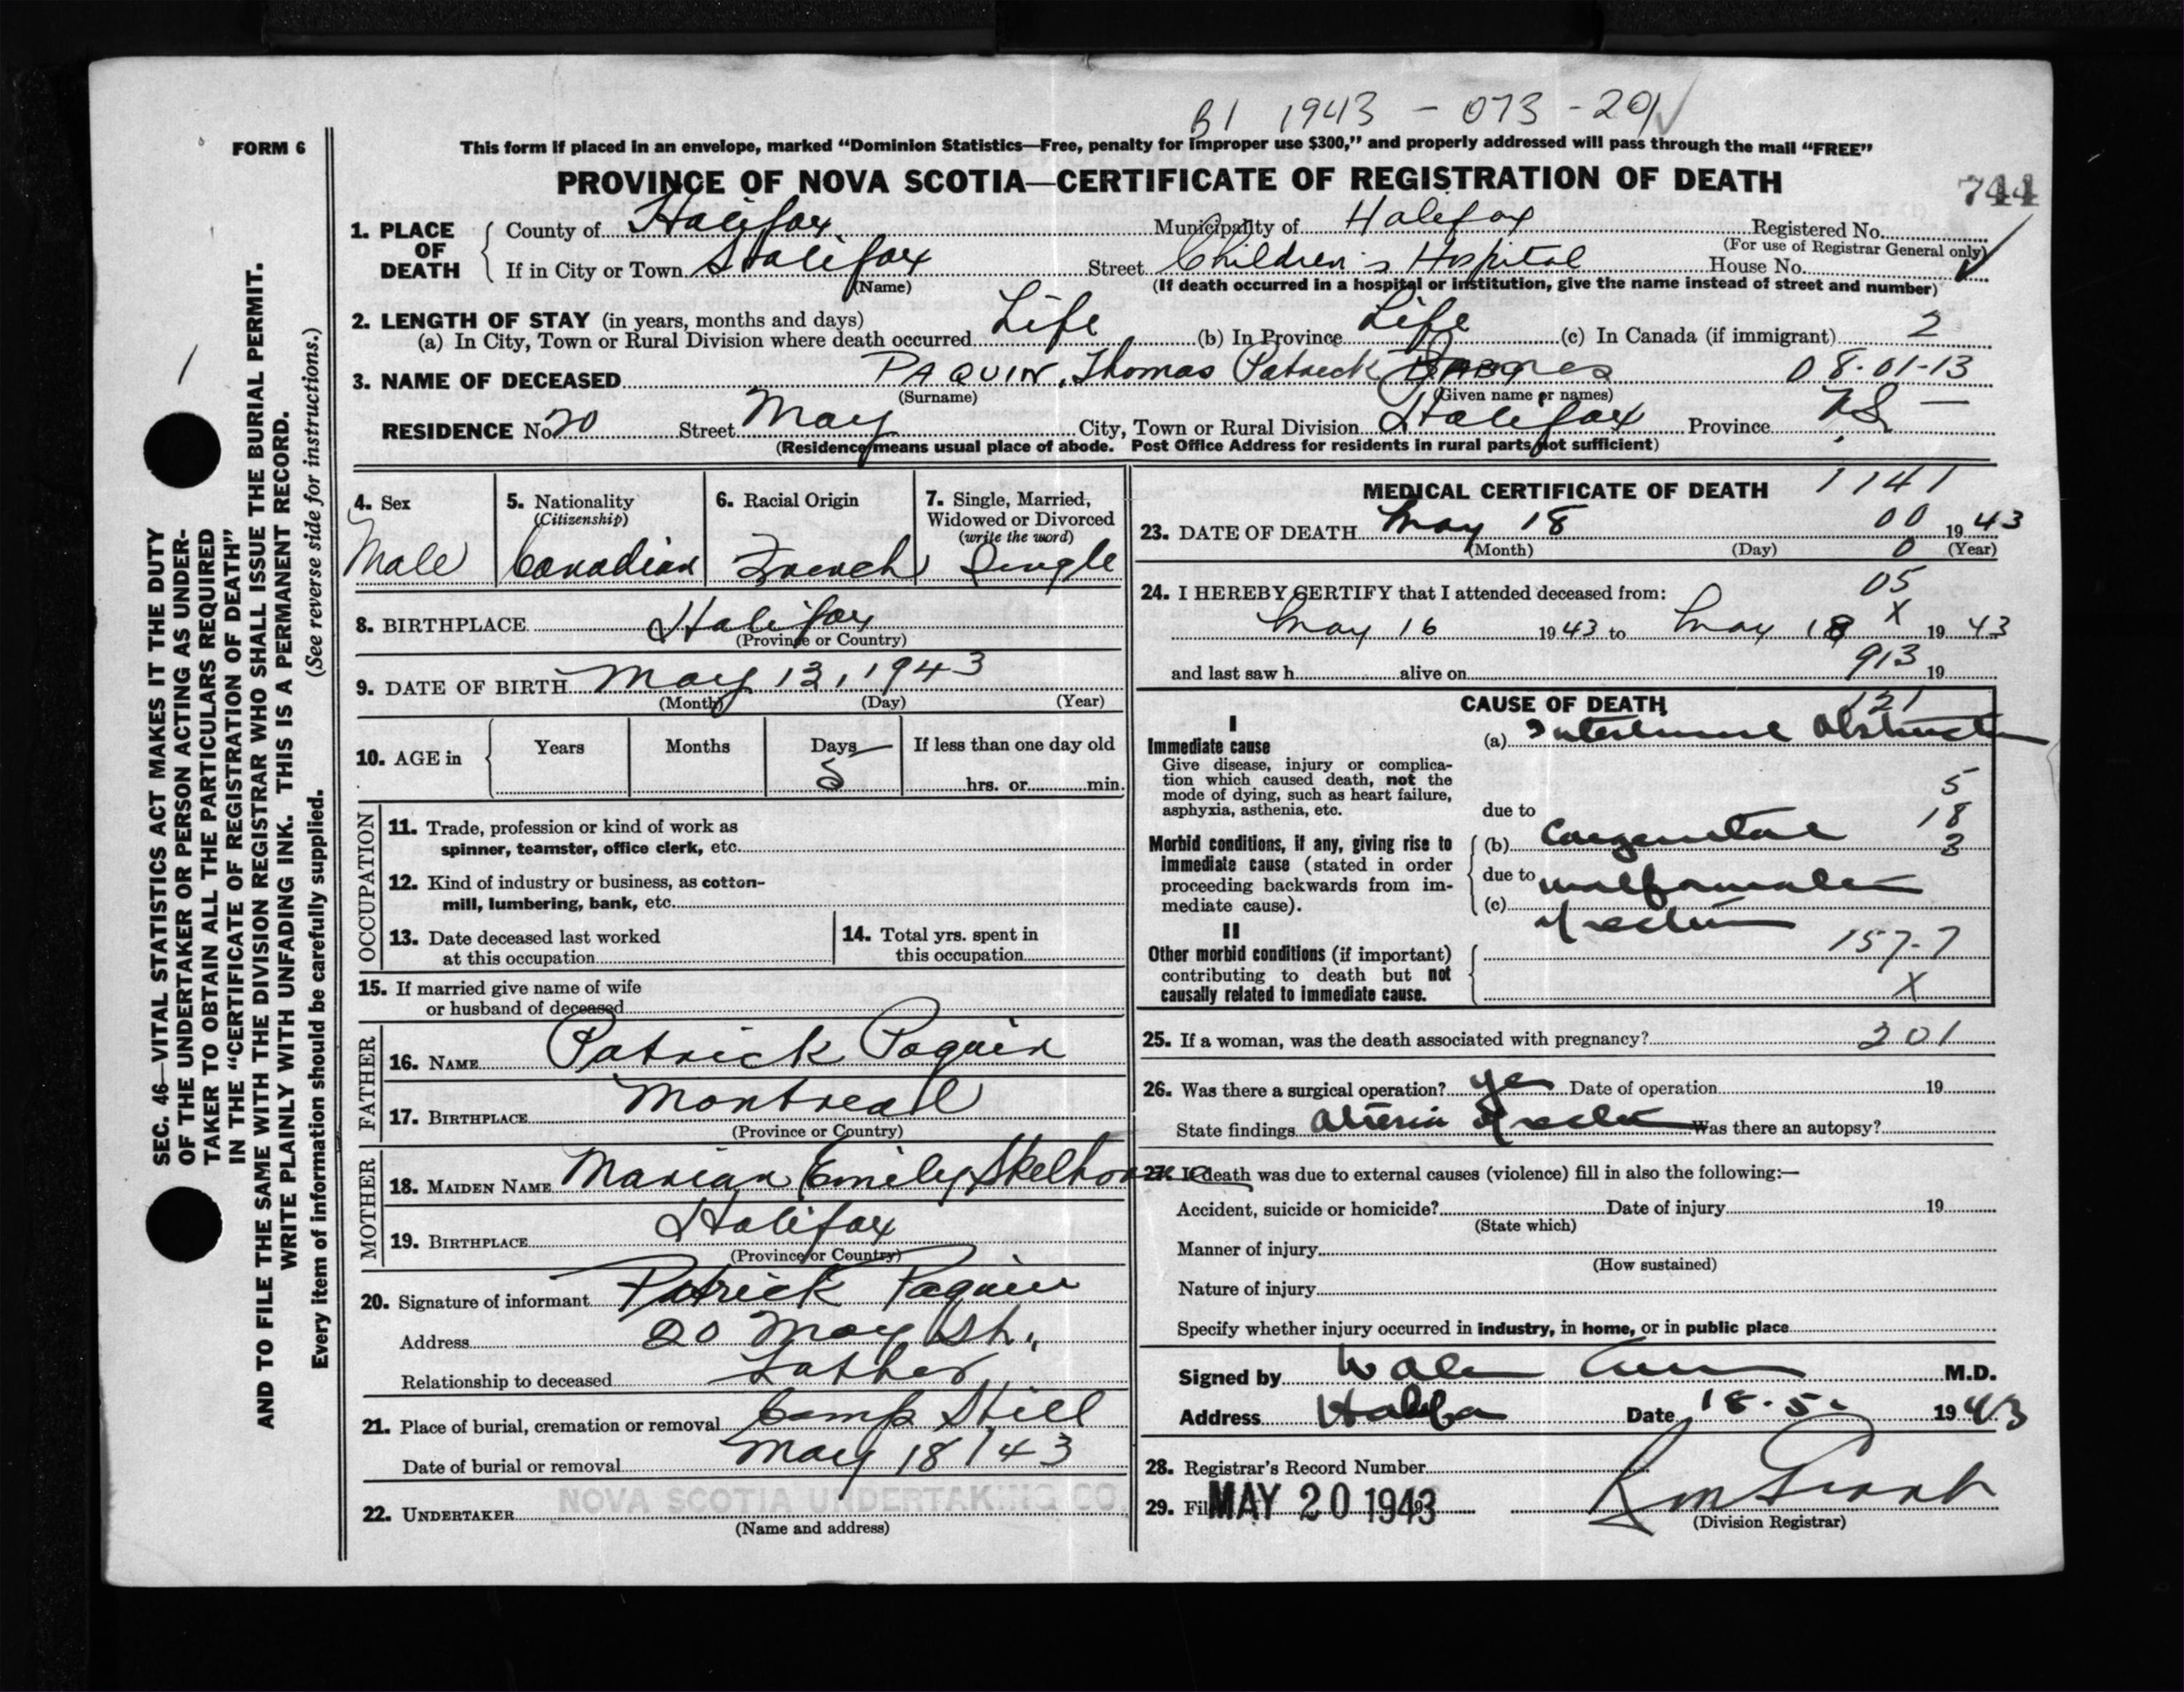 B1 1943 - 073 - 201
FORM 6
This form if placed in an envelope, marked "Dominion Statistics—Free, penalty for improper use $300," and properly addressed will pass through the mail "FREE"
PROVINCE OF NOVA SCOTIA—CERTIFICATE OF REGISTRATION OF DEATH
744
1. PLACE OF DEATH
County of Halifax Municipality of Halifax Registered No.
(For use of Registrar General only)
If in City or Town Halifax Street Children's Hospital House No.
(Name) (If death occurred in a hospital or institution, give the name instead of street and number)
2. LENGTH OF STAY (in years, months and days)
(a) In City, Town or Rural Division where death occurred Life (b) In Province Life (c) In Canada (if immigrant) 2
3. NAME OF DECEASED PAQUIN, Thomas Patrick 08-01-13
(Surname) (Given name or names)
RESIDENCE No. 20 Street May City, Town or Rural Division Halifax Province N.S.
(Residence means usual place of abode. Post Office Address for residents in rural parts not sufficient)
4. Sex
Male
5. Nationality
(Citizenship)
Canadian
6. Racial Origin
French
7. Single, Married,
Widowed or Divorced
(write the word)
Single
8. BIRTHPLACE Halifax
(Province or Country)
9. DATE OF BIRTH May 13, 1943
(Month) (Day) (Year)
10. AGE in Years Months Days If less than one day old
5 hrs. or min.
OCCUPATION
11. Trade, profession or kind of work as
spinner, teamster, office clerk, etc.
12. Kind of industry or business, as cotton-
mill, lumbering, bank, etc.
13. Date deceased last worked
at this occupation
14. Total yrs. spent in
this occupation
15. If married give name of wife
or husband of deceased
FATHER
16. NAME Patrick Paquin
17. BIRTHPLACE Montreal
(Province or Country)
MOTHER
18. MAIDEN NAME Marian Emily Skelhorne
19. BIRTHPLACE Halifax
(Province or Country)
20. Signature of informant Patrick Paquin
Address 20 May St.,
Relationship to deceased Father
21. Place of burial, cremation or removal Camp Hill
Date of burial or removal May 18/43
22. UNDERTAKER NOVA SCOTIA UNDERTAKING CO.
(Name and address)
MEDICAL CERTIFICATE OF DEATH 1141
23. DATE OF DEATH May 18 00 1943
(Month) (Day) 0 (Year)
24. I HEREBY CERTIFY that I attended deceased from: 05
May 16 1943 to May 18 X 1943
and last saw h alive on 913 19
CAUSE OF DEATH 121
I
Immediate cause
Give disease, injury or complica-
tion which caused death, not the
mode of dying, such as heart failure,
asphyxia, asthenia, etc.
(a) Intestinal Obstruction
5
due to
18
Morbid conditions, if any, giving rise to
immediate cause (stated in order
proceeding backwards from im-
mediate cause).
(b) Congenital 3
due to malformation
(c) of rectum
II
Other morbid conditions (if important)
contributing to death but not
causally related to immediate cause.
157-7
X
25. If a woman, was the death associated with pregnancy? 201
26. Was there a surgical operation? yes Date of operation 19
State findings Atresia of rectum Was there an autopsy?
27. If death was due to external causes (violence) fill in also the following:—
Accident, suicide or homicide? Date of injury 19
(State which)
Manner of injury
(How sustained)
Nature of injury
Specify whether injury occurred in industry, in home, or in public place
Signed by M.D.
Address Halifax Date 18.5. 1943
28. Registrar's Record Number
29. MAY 20 1943
(Division Registrar)
SEC. 46—VITAL STATISTICS ACT MAKES IT THE DUTY
OF THE UNDERTAKER OR PERSON ACTING AS UNDER-
TAKER TO OBTAIN ALL THE PARTICULARS REQUIRED
IN THE "CERTIFICATE OF REGISTRATION OF DEATH"
AND TO FILE THE SAME WITH THE DIVISION REGISTRAR WHO SHALL ISSUE THE BURIAL PERMIT.
WRITE PLAINLY WITH UNFADING INK. THIS IS A PERMANENT RECORD.
Every item of information should be carefully supplied. (See reverse side for instructions.)